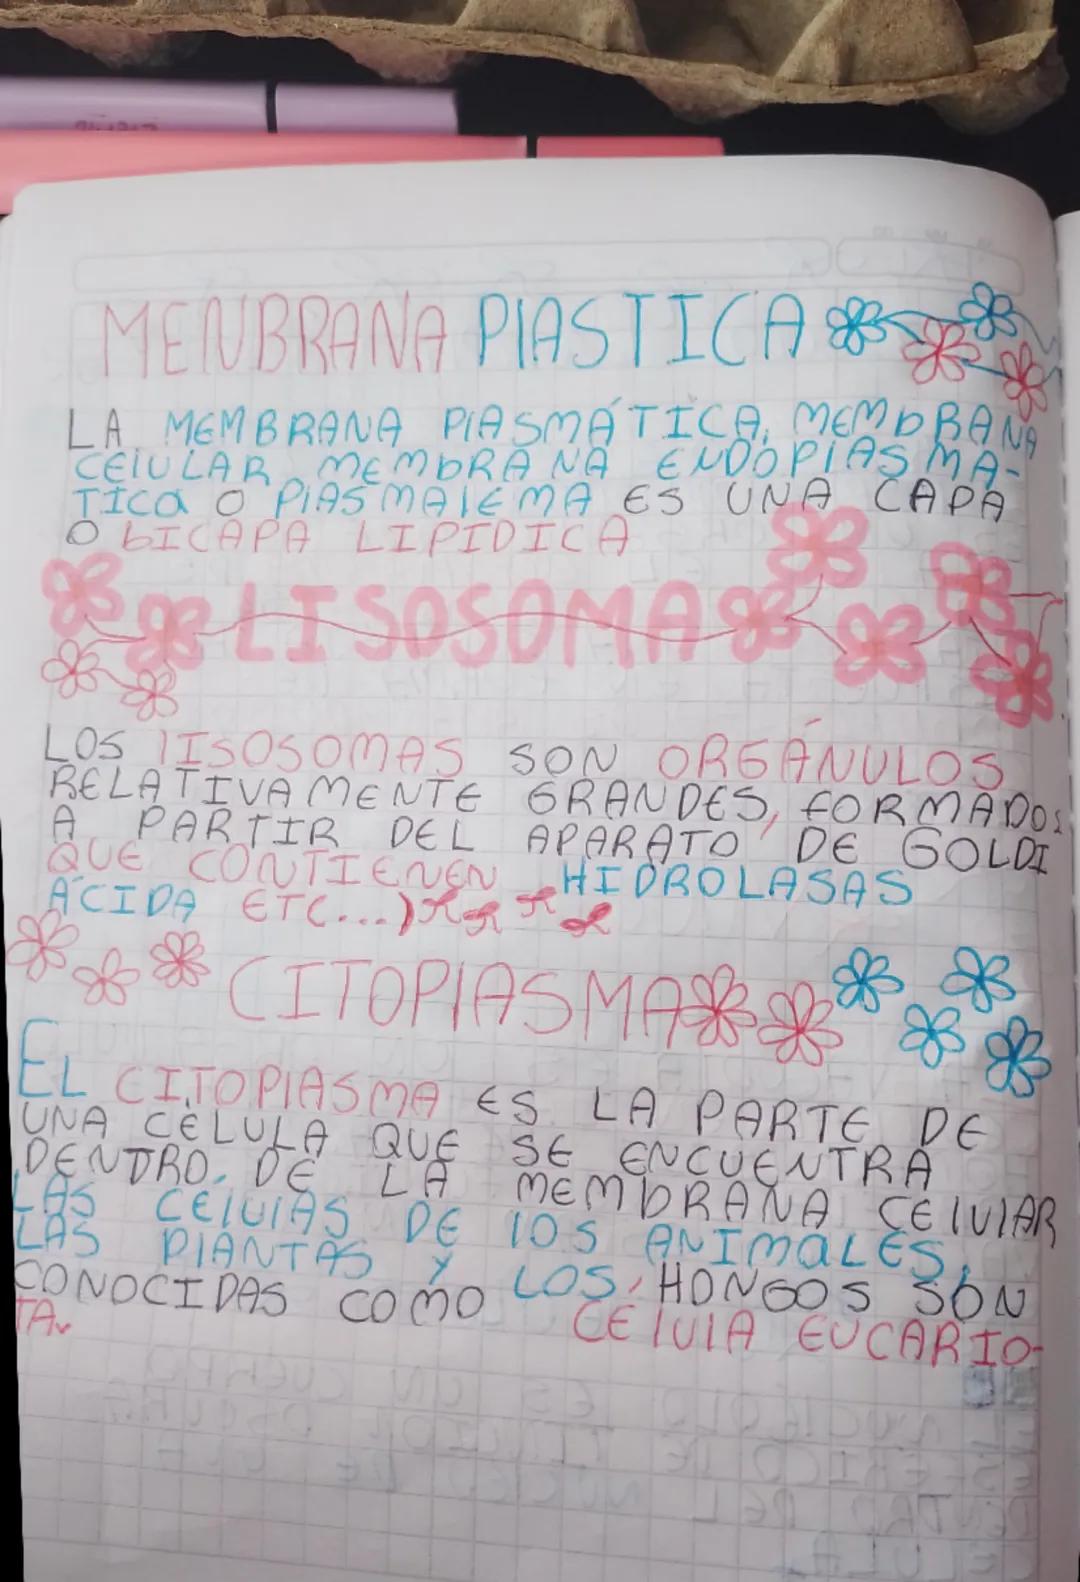 MENBRANA PlASTICA
LA MEMBRANA PlASMÁTICA, MEMBRANA
CElULAR, MEMBRANA ENDOPlASMA-
TICA O PlASMAlEMA ES UNA CAPA
O BICAPA LIPIDICA
LISOSOMA
LOS lISOSOMAS SON ORGÁNULOS
RELATIVAMENTE GRANDES, FORMADOS
A PARTIR DEL APARATO DE GOLDI
QUE CONTIENEN HIDROLASAS
ÁCIDA ETC...)
CITOPlASMA
EL CITOPlASMA ES LA PARTE DE
UNA CÉLULA QUE SE ENCUENTRA
DENTRO DE LA MEMBRANA CElUlAR
LAS CElUlAS DE lOS ANIMALES,
LAS PlANTAS Y LOS HONGOS SON
CONOCIDAS COMO CElUlA EUCARIO-
TA